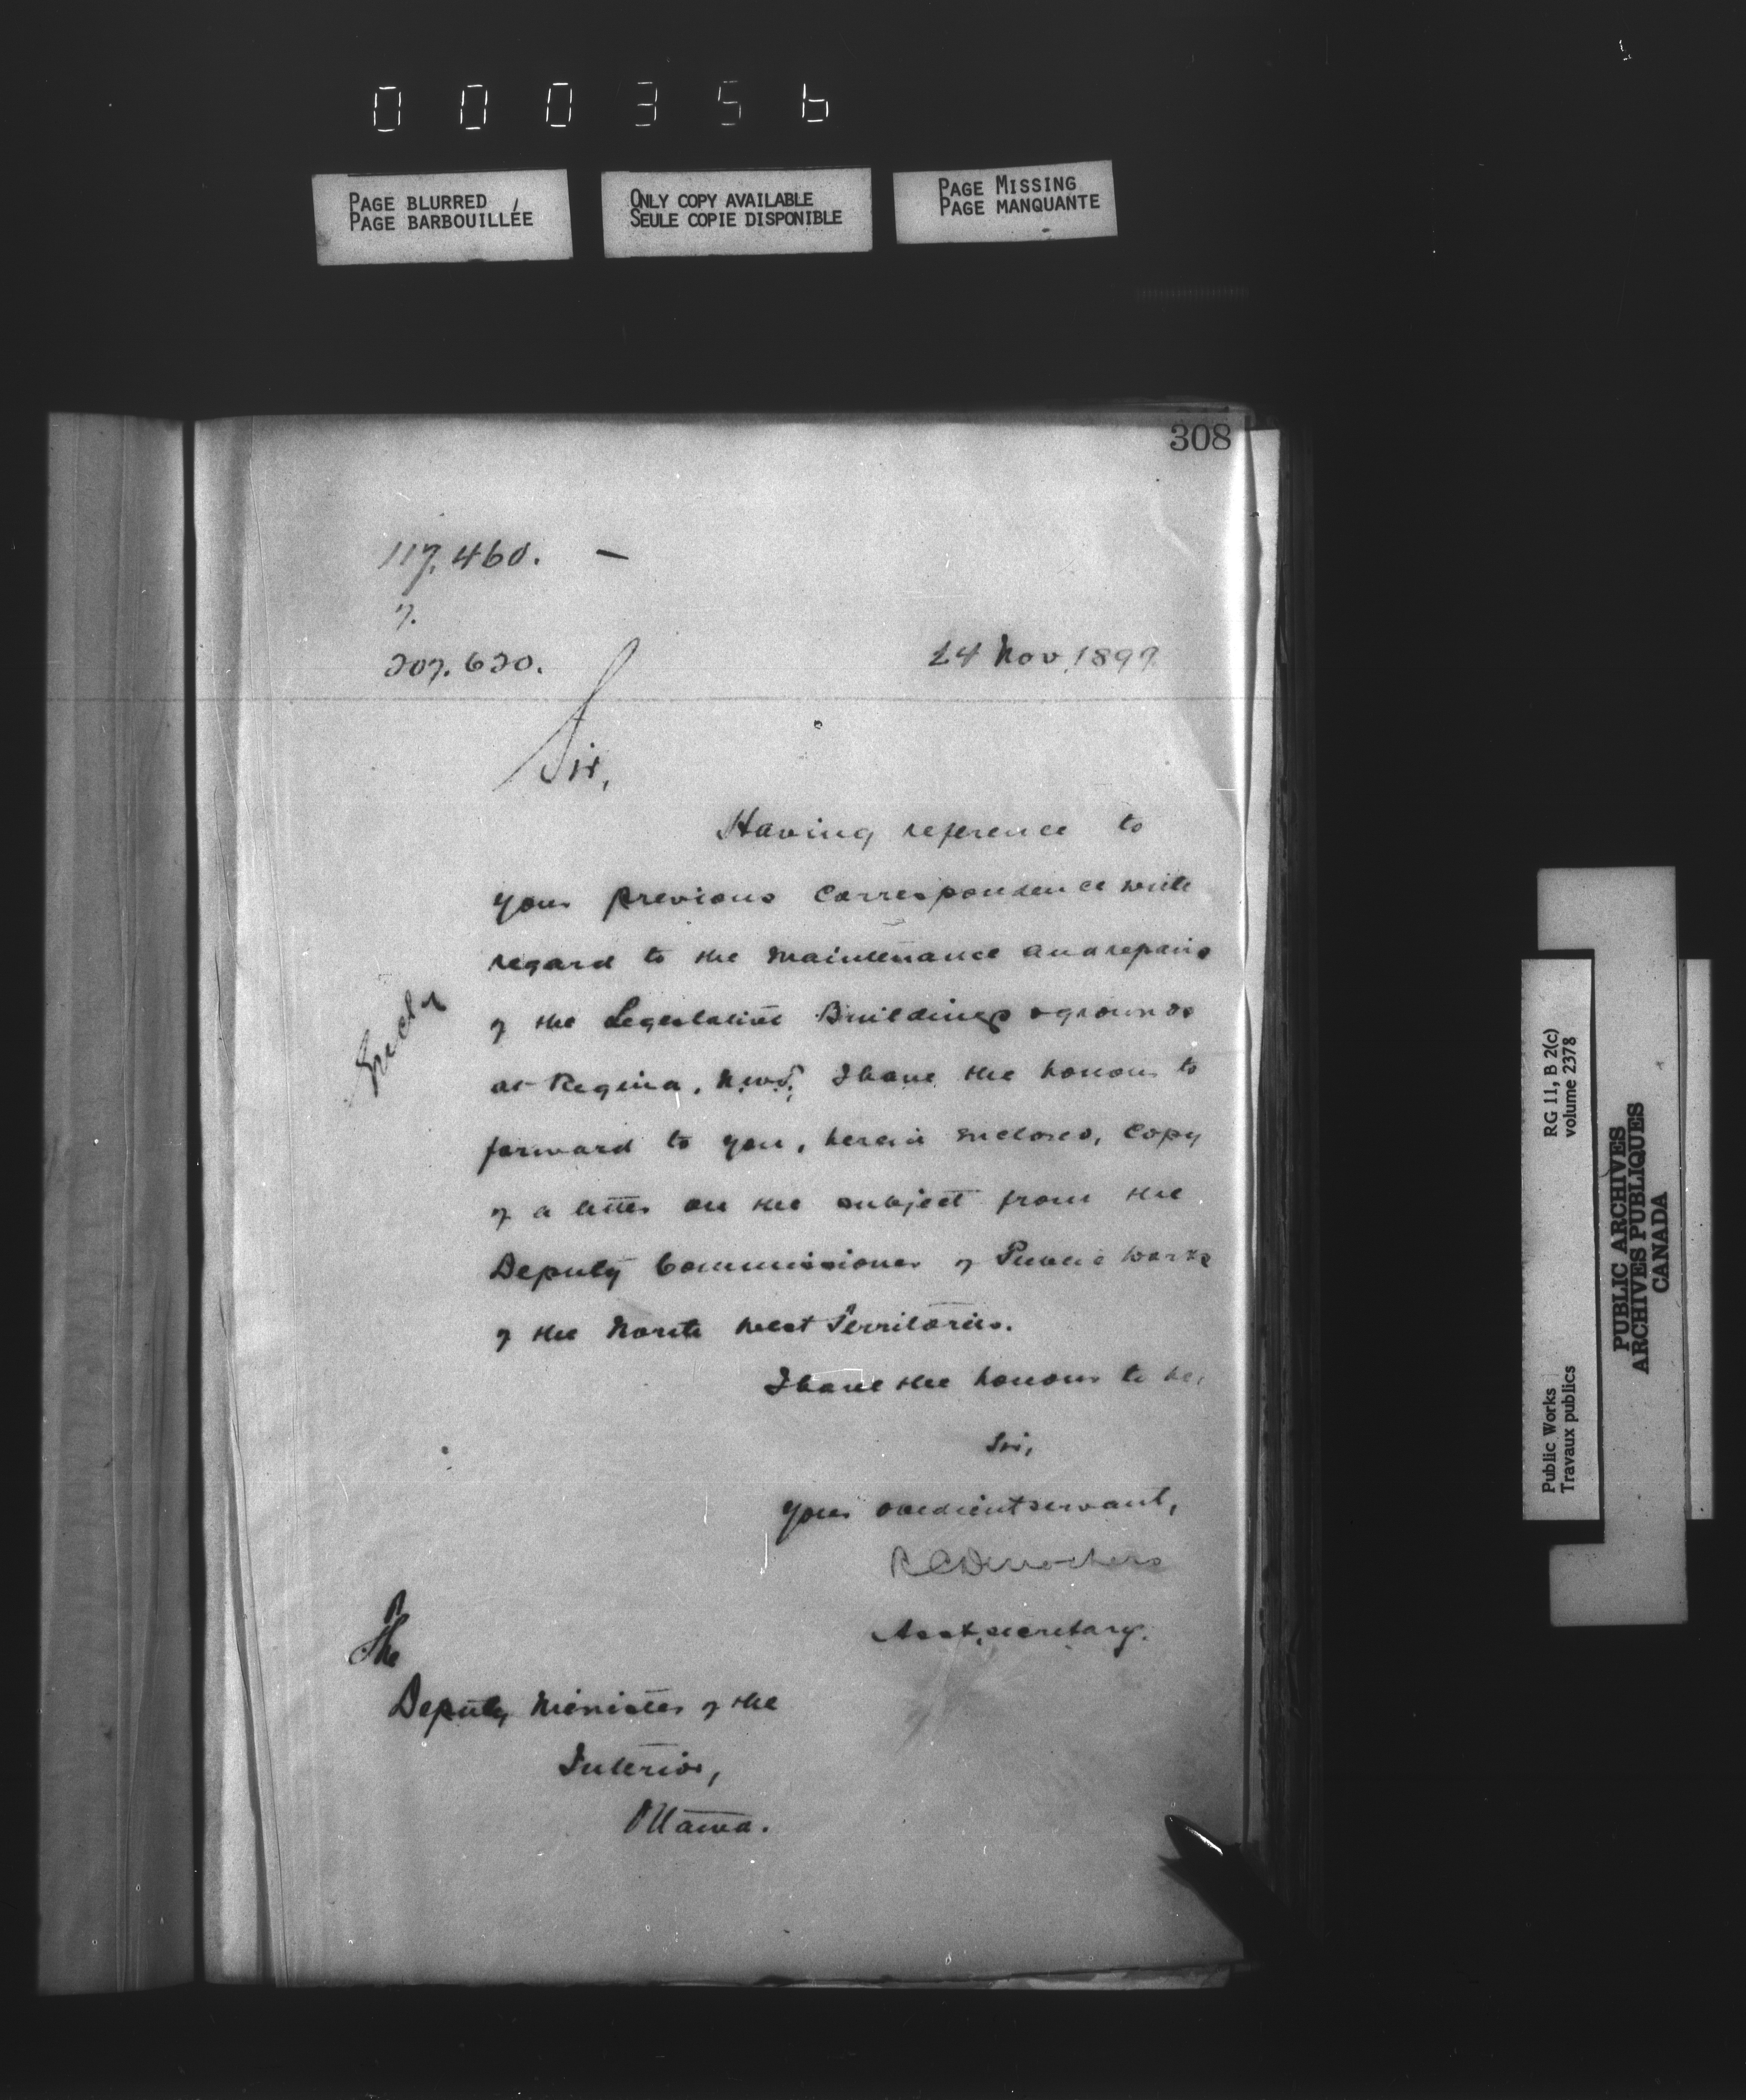 000356
PAGE BLURRED
PAGE BARBOUILLÉE
ONLY COPY AVAILABLE
SEULE COPIE DISPONIBLE
PAGE MISSING
PAGE MANQUANTE
308
117.460. —
7.
207.620.
24 Nov. 1897.
Sir,
Having reference to
your previous correspondence with
regard to the maintenance and repairs
of the Legislative Buildings & grounds
at Regina, N.W.T., I have the honour to
forward to you, herein enclosed, copy
of a letter on the subject from the
Deputy Commissioner of Public Works
of the North West Territories.
I have the honour to be,
Sir,
Your obedient servant,
R C Desrochers
Asst. secretary.
The
Deputy Minister of the
Interior,
Ottawa.
Public Works
Travaux publics
RG 11, B 2(c)
volume 2378
PUBLIC ARCHIVES
ARCHIVES PUBLIQUES
CANADA